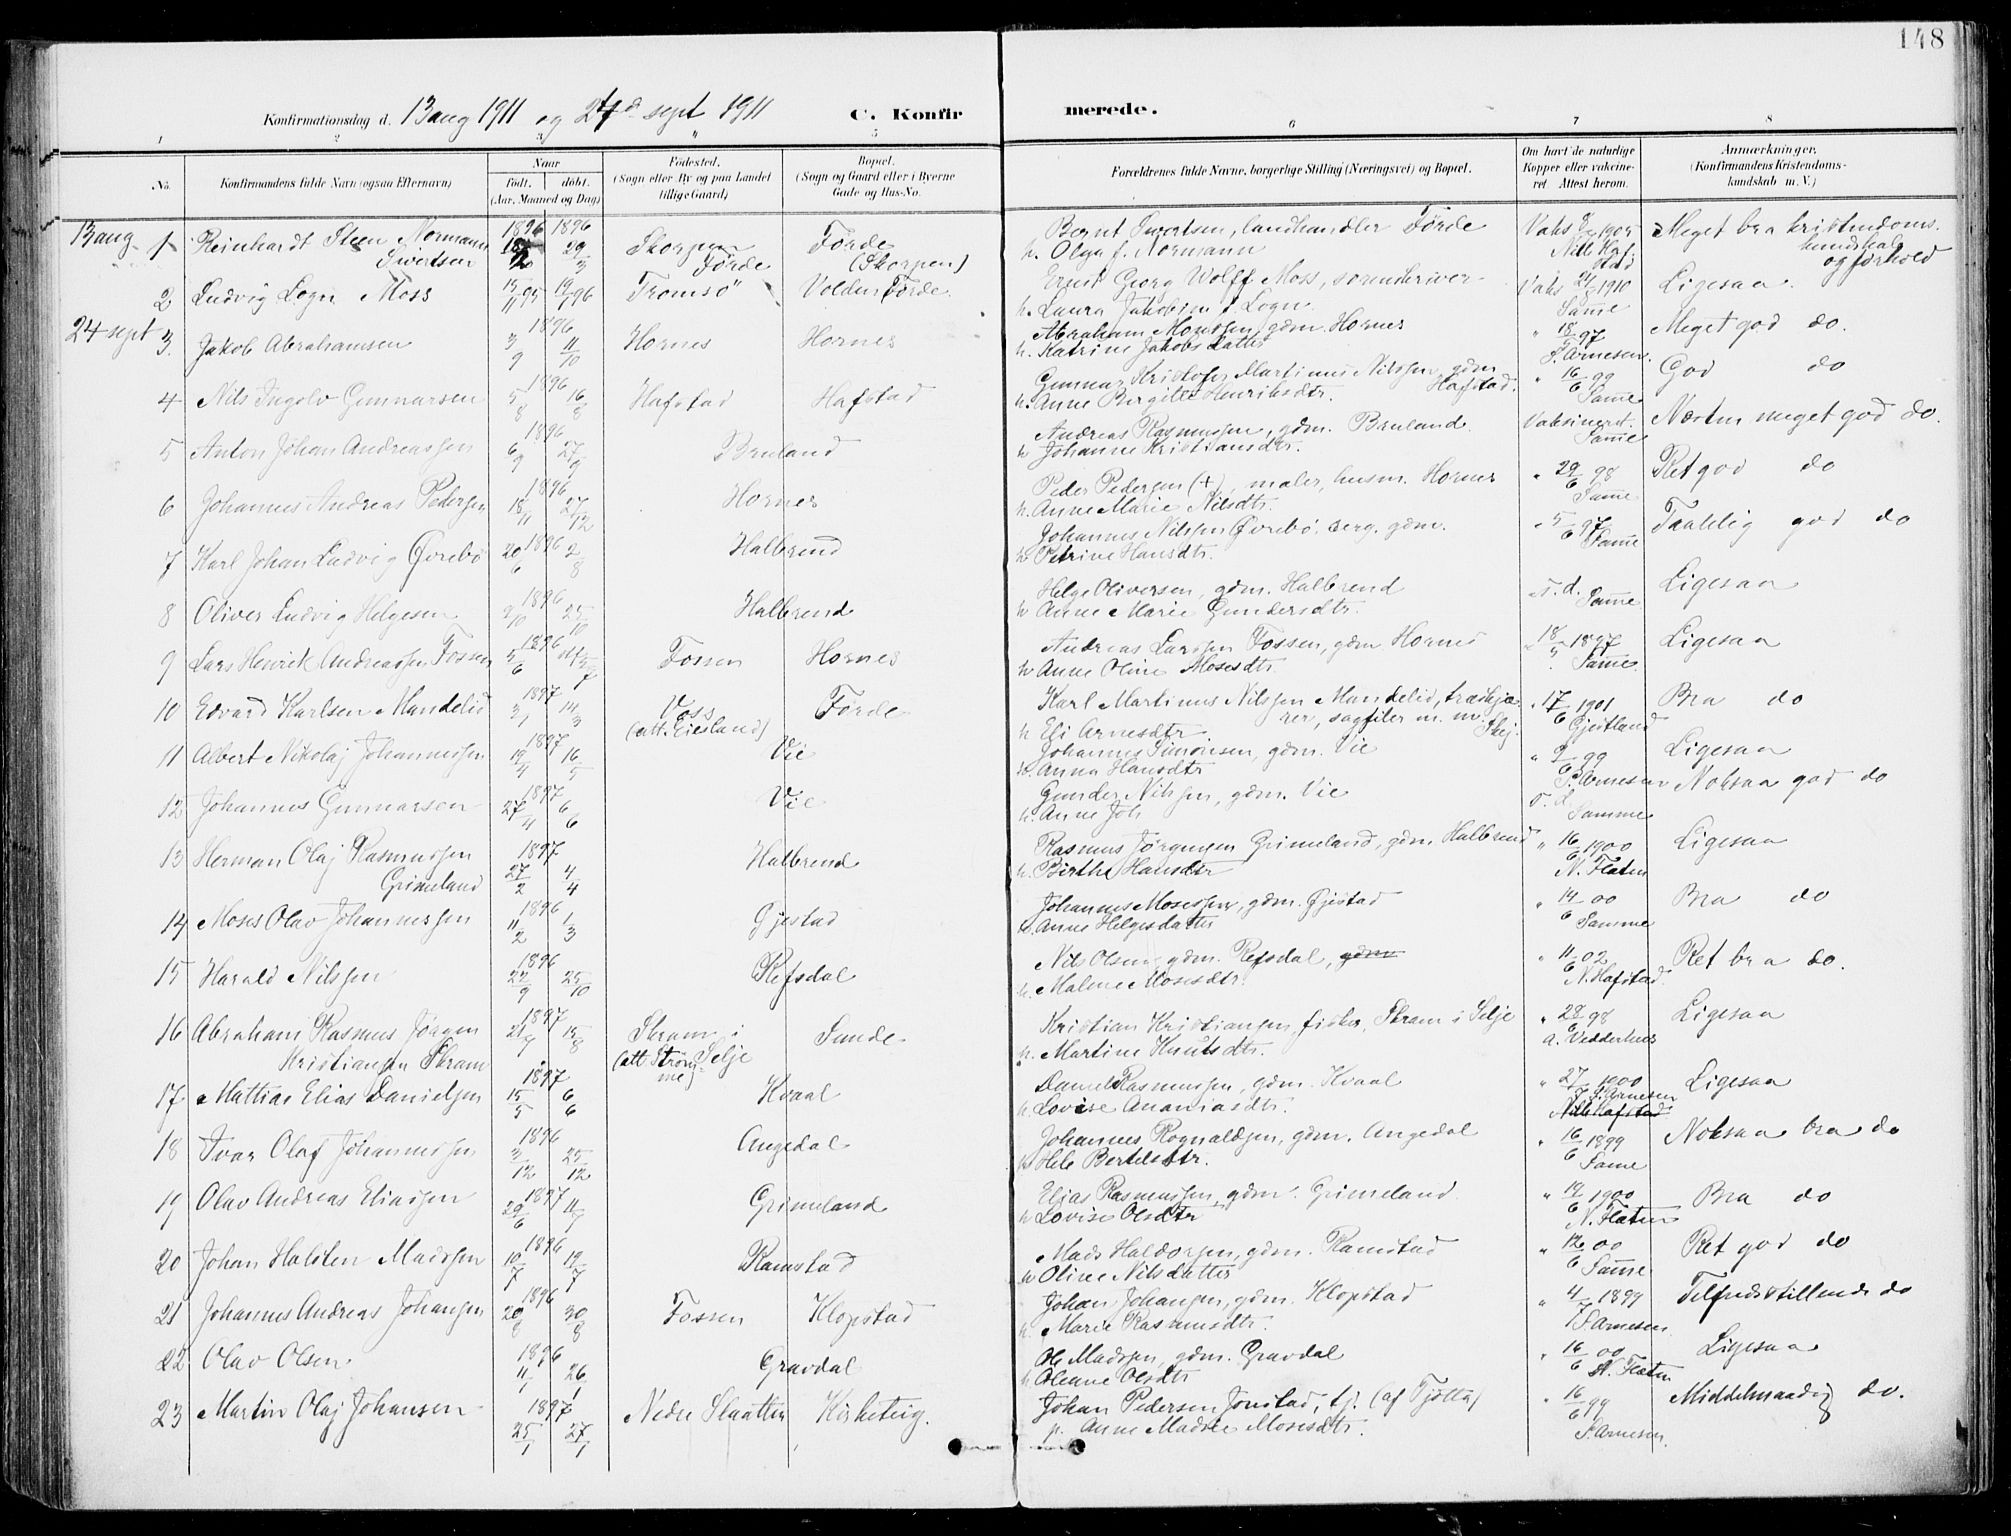 148
Konfirmationsdag d. 13 aug 1911 og 24d sept 1911 C. Konfirmerede.
1 2 3 4 5 6 7 8
No. Konfirmandens fulde Navn (ogsaa Efternavn) Naar født. døbt. (Aar, Maaned og Dag) Fødested. (Sogn eller By og paa Landet tillige Gaard) Bopæl. (Sogn og Gaard eller i Byerne Gade og Hus-No. Forældrenes fulde Navne, borgerlige Stilling (Næringsvei) og Bopæl. Om havt de naturlige Kopper eller vakcineret. Attest herom. Anmærkninger. (Konfirmandens Kristendomskundskab m. V.)
13 aug. 1 Reinhardt Steen Normann 1896 1896 29/3 Skorpen Førde Bernt Ivertsen, landhandler Førde Vaks 1905 Meget bra kristendoms-
Ivertsen Førde (Skorpen) h. Olga f. Normann Nils Hafstad kundskab og forhold
2 Ludvig Logn Moss 15/11 95 19/1 96 Tromsø Volden Førde. Ernst Georg Wolff Moss, sorenskriver Vaks 1910 Ligesaa.
h. Laura Jakobine f. Logn. Samme
24 sept 3. Jakob Abrahamsen 1896 3/9 11/10 Hornes Hornes Abraham Monssen, gdm. Hornes " 18/ 97 Meget god do.
h. Katrine Jakobsdatter S. Arnesen.
4 Nils Ingolv Gunnarsen 1896 5/8 16/8 Hafstad Hafstad Gunnar Kristofer Martinus Nilssen, gdm. Hafstad. " 16/6 99 God do
h. Anne Birgitte Henriksdtr. Samme
5 Anton Johan Andreassen 1896 6/9 27/9 Bruland Andreas Rasmussen, gdm. Bruland Vaksinert. Næsten meget god do.
h Johanne Kristiansdtr. Samme
6 Johannes Andreas Pedersen 1896 18/11 27/12 Hornes Peder Pedersen (+), maler, husm. Hornes " 29/6 98 Ret god do
h. Anne Marie Nilsdtr. Samme
7 Karl Johan Ludvig Øvrebø 1896 20/6 2/8 Halbrend Johannes Nilssen Øvrebø, serg. gdm. " 5/6 97 Taalelig god do
h Petrine Hansdtr. Samme
8 Oliver Ludvig Helgesen 1896 2/10 25/10 Halbrend Helge Oliversen, gdm. Halbrend " s. d. Ligesaa
h Anne Marie Gundersdtr. Samme
9 Lars Henrik Andreassen Fossen 1896 5/6 Fossen Hornes Andreas Larssen Fossen, gdm Hornes " 18/ 1897 Ligesaa
h Anne Oline Mosesdtr. Samme
10 Edvard Karlsen Mandelid 1897 3/1 14/3 Voss Førde Karl Martinus Nilssen Mandelid, træskjærer, sagfiler m. m. " 17/6 1901 Bra do
(att. Eiesland) h Eli Arnesdtr. Skej. Gjestland
11 Albert Nikolaj Johannessen 1897 19/4 16/5 Vie Johannes Simonsen, gdm. Vie " 9/6 99 Ligesaa
h. Anna Hansdtr S. Arnesen
12 Johannes Gunnarsen 1897 27/4 6/6 Vie Gunder Nilssen, gdm. Vie s. d. Noksaa god do
h. Anne Joh Samme
13 Herman Olaj Rasmussen 1897 27/2 4/4 Halbrend Rasmus Jørgensen Grimeland, gdm. Halbrend " 16/6 1900 Ligesaa
Grimeland h. Birthe Hansdtr N. Flaten
14 Moses Olav Johannessen 1896 11/2 1/3 Gjestad Johannes Mosessen, gdm. Gjestad " 14/6 00 Bra do
h. Anne Helgesdatter Samme
15 Harald Nilssen 1896 22/9 25/10 Refsdal Nils Olsen, gdm. Refsdal, gdm " 11/6 02 Ret bra do.
h. Malene Mosesdtr. N. Hafstad.
16 Abraham Rasmus Jørgen 1897 15/8 Skram i Sunde Kristian Kristiansen, fisker, Skram i Selje " 28/6 98 Ligesaa
Kristiansen Skram (att. Strømme) Selje h. Martine Knutsdtr. a. Vedderhus
17 Mattias Elias Danielsen 1897 15/5 6/6 Kvaal Daniel Rasmussen, gdm. Kvaal " 27/7 1900 Ligesaa
h. Lovise Ananiasdtr. S. Arnesen Nils Hafstad
18 Ivar Olaf Johannessen 1896 3/12 25/12 Angedal Johannes Rognaldsen, gdm. Angedal " 16/6 1899 Noksaa bra do
h Bertelsdtr. Samme
19 Olav Andreas Eliassen 1897 29/6 11/7 Grimeland Elias Rasmussen, gdm. Grimeland " 14/6 1900 Bra do
h Lovise Olsdtr N. Flaten
20 Johan Halsten Madssen 1896 10/7 19/7 Ramstad Mads Haldorsen, gdm. Ramstad " 12/6 00 Ret god do
h Oline Nilsdatter Samme
21 Johannes Andreas Johansen 1896 20/8 30/8 Fossen Klopstad Johan Johansen, gdm. Klopstad " 4/7 1899 Tilfredsstillende do
h. Marie Rasmusdtr. S. Arnesen
22 Olav Olsen 1896 11/1 26/1 Gravdal Ole Madssen, gdm. Gravdal " 16/6 00 Ligesaa
h Oleane Olsdtr N. Flaten
23 Martin Olaj Johansen 1897 25/1 27/1 Nedre Slaatten Kirketeig. Johan Pedersen Jonstad, tj. (af Tjøtta) " 16/6 99 Middelmaadig do.
p. Anne Madsdtr Mosesdtr. S. Arnesen.